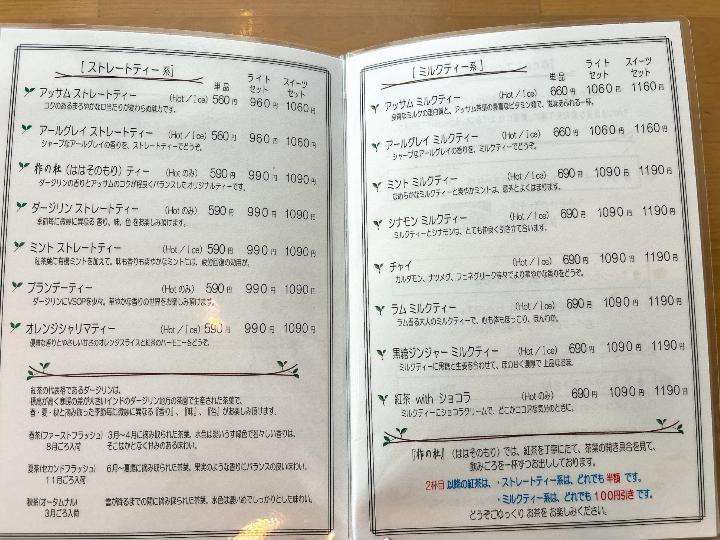 [ ストレートティー 系]
単品 ライトセット スイーツセット
アッサム ストレートティー (Hot／Ice) 560円 960円 1060円
コクのあるまろやかな口当たりが変わらぬ魅力です。
アールグレイ ストレートティー (Hot／Ice) 560円 960円 1060円
シャープなアールグレイの香りを、ストレートティーでどうぞ。
柞の杜（ははそのもり）ティー (Hot のみ) 590円 990円 1090円
ダージリンの香りとアッサムのコクが程良くバランスしたオリジナルティーです。
ダージリン ストレートティー (Hot のみ) 590円 990円 1090円
季節毎に微妙に異なる 香り、味、色 をお楽しみ頂けます。
ミント ストレートティー (Hot／Ice) 590円 990円 1090円
紅茶葉に有機ミントを加えて、味も香りも爽やかなミントには、疲労回復の効用が。
ブランデーティー (Hot のみ) 590円 990円 1090円
ダージリンにVSOPを少々。華やかな香りの世界をお楽しみ頂けます。
オレンジシャリマティー (Hot／Ice) 590円 990円 1090円
優雅な香りとやさしい甘さのオレンジスライスと紅茶のハーモニーをどうぞ。
紅茶の代表格であるダージリンは、
標高が高く寒暖の差が大きいインドのダージリン地方の茶園で生産された茶葉で、
春・夏・秋と摘み取った季節毎に微妙に異なる『香り』、『味』、『色』がお楽しみ頂けます。
春茶(ファーストフラッシュ) 3月～4月に摘み取られた茶葉。水色は淡いうす緑色で若々しい香りは、
8月ごろ入荷 そこはかとなく甘みのある味わい。
夏茶(セカンドフラッシュ) 6月～夏節に摘み取られた茶葉。果実のような香りにバランスの良い味わい。
11月ごろ入荷
秋茶(オータムナル) 雪が降るまでの間に摘み取られた茶葉。水色は濃いめでしっかりとした味わい。
3月ごろ入荷
[ ミルクティー系 ]
単品 ライトセット スイーツセット
アッサム ミルクティー (Hot／Ice) 660円 1060円 1160円
良質なミルクの蛋白質と、アッサム茶葉の豊富なビタミン類で、滋味あふれる一杯。
アールグレイ ミルクティー (Hot／Ice) 660円 1060円 1160円
シャープなアールグレイの香りを、ミルクティーでどうぞ。
ミント ミルクティー (Hot／Ice) 690円 1090円 1190円
なめらかなミルクティーと爽やかミントは、意外とよくはまります。
シナモン ミルクティー (Hot／Ice) 690円 1090円 1190円
ミルクティーとシナモンは、とても仲良く引き立て合います。
チャイ (Hot／Ice) 690円 1090円 1190円
カルダモン、ナツメグ、フェネグリーク等々でより華やかな香りをどうぞ。
ラム ミルクティー (Hot／Ice) 690円 1090円 1190円
ラム香る大人のミルクティーで、心も体もほっこり、ほんわか。
黒糖ジンジャー ミルクティー (Hot／Ice) 690円 1090円 1190円
ミルクティーに黒糖と生姜を合わせて、味の甘く濃厚で 上品なお味。
紅茶 with ショコラ (Hot／Ice) 690円 1090円 1190円
ミルクティーにショコラクリームで、どこかココアな気分のときに。
『柞の杜』（ははそのもり）では、紅茶を丁寧にたて、茶葉の開き具合を見て、
飲みごろを一杯ずつお出ししております。
2杯目 以降の紅茶は、・ストレートティー系は、どれでも 半額 です。
・ミルクティー系は、どれでも 100円引き です。
どうぞごゆっくり お茶を お楽しみください。